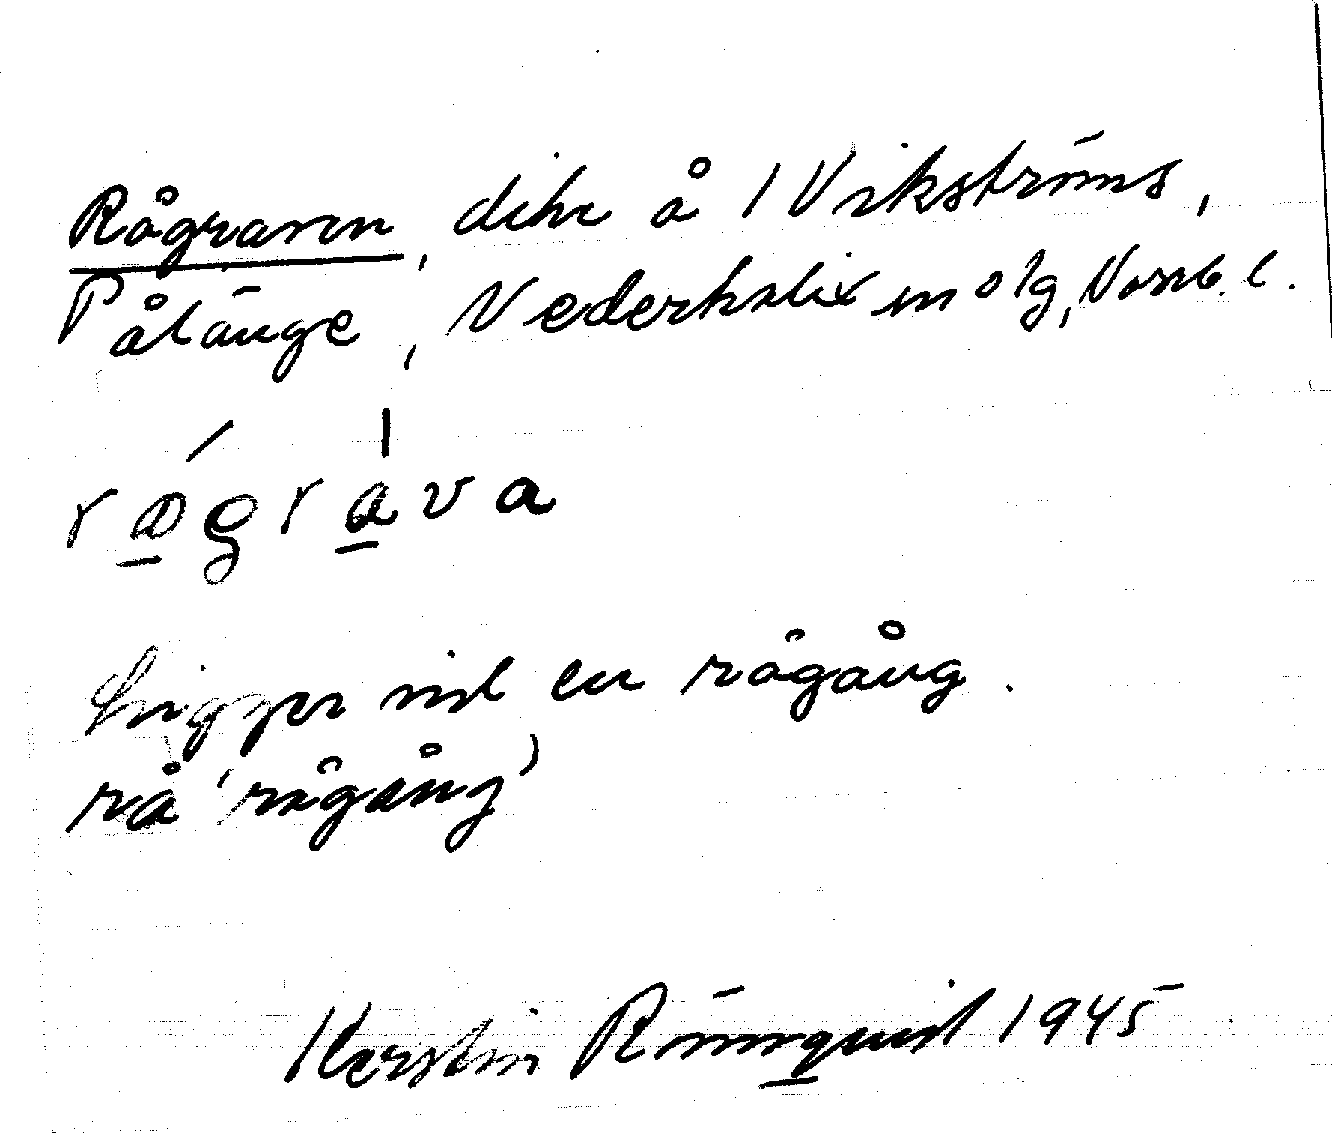 Rågraven, dike å 1 Vikströms,
Pålänge, Nederkalix sn o lg, Norrb. l.
rågrava
Ligger vid en rågång.
rå 'rågång'
Kerstin Rönnquist 1945